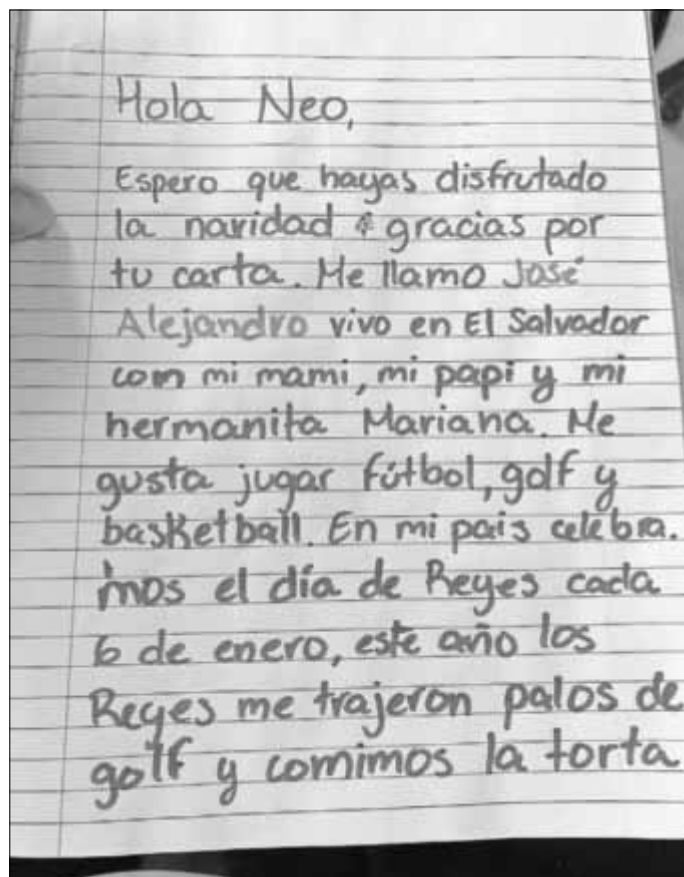 Hola Neo,
Espero que hayas disfrutado
la navidad & gracias por
tu carta. Me llamo José
Alejandro vivo en El Salvador
con mi mami, mi papi y mi
hermanita Mariana. Me
gusta jugar fútbol, golf y
basketball. En mi pais celebra.
mos el día de Reyes cada
6 de enero, este año los
Reyes me trajeron palos de
golf y comimos la torta